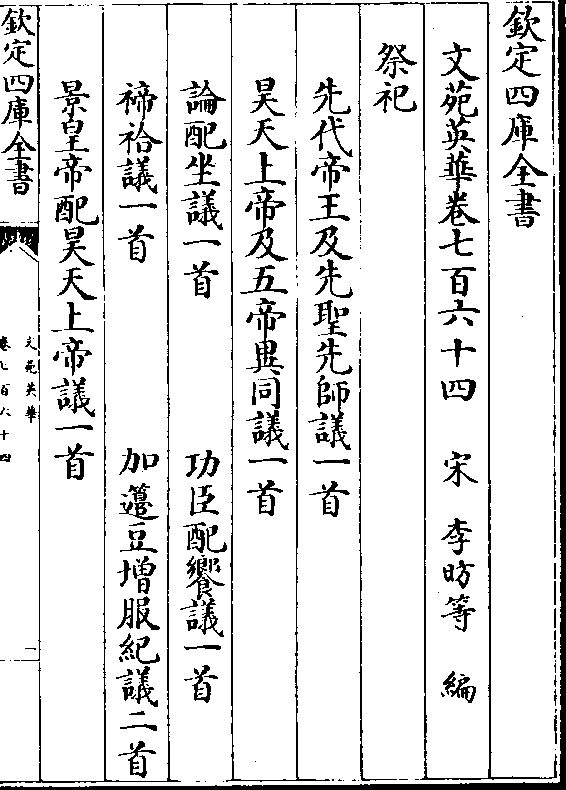 欽定四庫全書
文苑英華卷七百六十四　宋　李昉等　編
祭祀
先代帝王及先聖先師議一首
昊天上帝及五帝異同議一首
論配坐議一首　功臣配饗議一首
禘祫議一首　加籩豆增服紀議二首
景皇帝配昊天上帝議一首
欽定四庫全書
文苑英華
卷七百六十四
一